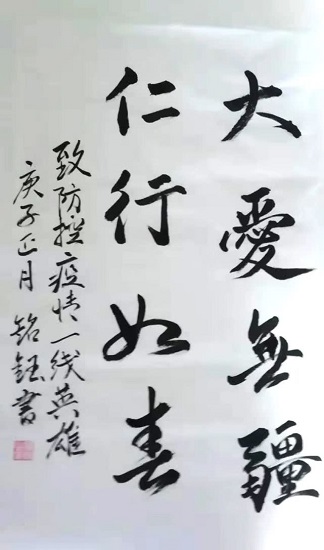 大愛無疆
仁行如春
致防控疫情一线英雄
庚子正月 铭鈺書